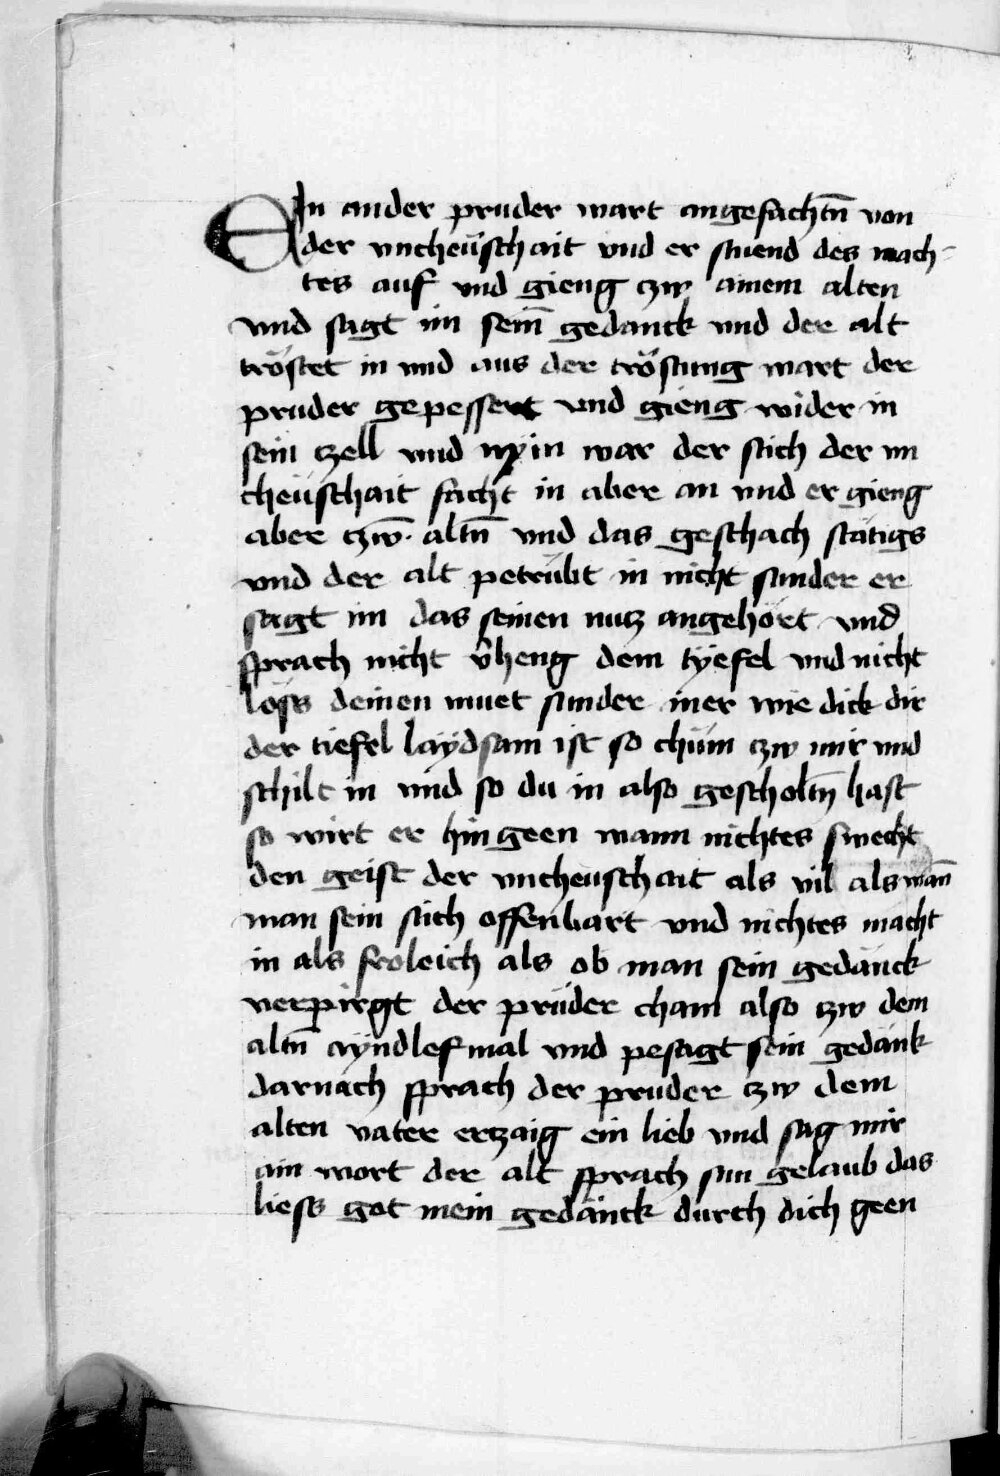 Ein ander pruder wart angefachtn̄ von
der vncheüschait vnd er stuend des nach-
tes auf vnd gieng czw ainem alten
vnd sagt im sein̄ gedanck vnd der alt
tröstet in vnd aus der tröstung wart der
pruder gepessert vnd gieng wider in
sein czell vnd nyin war der stich der vn
cheüschait facht in aber an vnd er gieng
aber czw̄. altn̄ vnd das geschach stätigs
vnd der alt petrübt in nicht sunder er
sagt im das seinen nutz angehört vnd
sprach nicht v̉heng dem tyefel vnd nicht
löss deinen muet sunder iner wie dick dir
der tiefel laydsam ist so chüm czw mir vnd
schilt in vnd so du in also gescholtn̄ hast
so wirt er hin geen wann nichtes swecht
den geist der vncheüschait als vil als wan̄
man sein stich offenbart vnd nichtes macht
in als froleich als ob man sein gedänck
verpirgt der prüder cham also czw dem
altn̄ ayndlef mal vnd pesagt sein gedänk
darnach sprach der pruder czw dem
alten vater erczaig ein lieb vnd sag mir
ain wort der alt sprach sun gelaub das
liess got mein gedänck durch dich geen